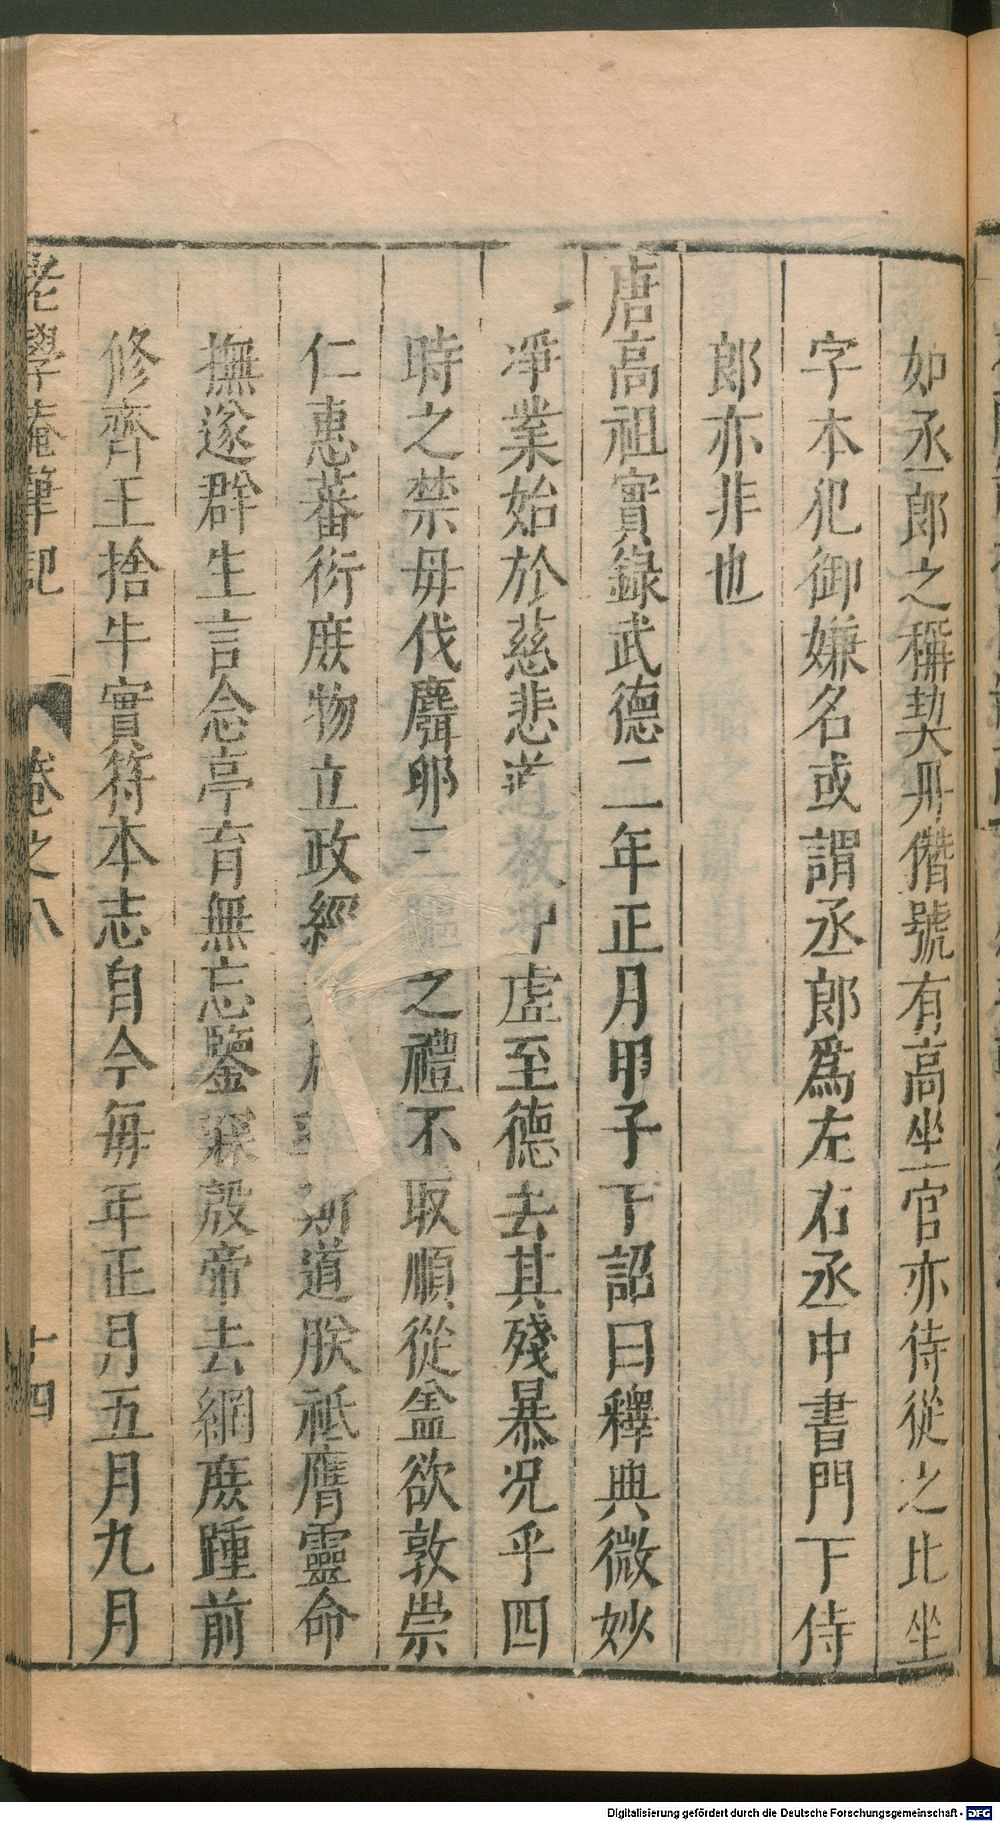 如丞郎之稱契丹僭號有高坐官亦侍從之比坐
字本犯御嫌名或謂丞郎爲左右丞中書門下侍
郎亦非也
唐高祖實錄武德二年正月甲子下詔曰釋典微妙
淨業始於慈悲道教虛至德去其殘暴况乎四
時之禁毋伐麛卵三之禮不取順從盒欲敦崇
仁惠蕃衍庶物立政經斯道朕祇膺靈命
撫遂群生言念亭育無忘鑒寐殷帝去網庶踵前
修齊王捨牛實符本志自今每年正月五月九月
老學庵筆記 卷之八 十四
Digitalisierung gefördert durch die Deutsche Forschungsgemeinschaft - DFG